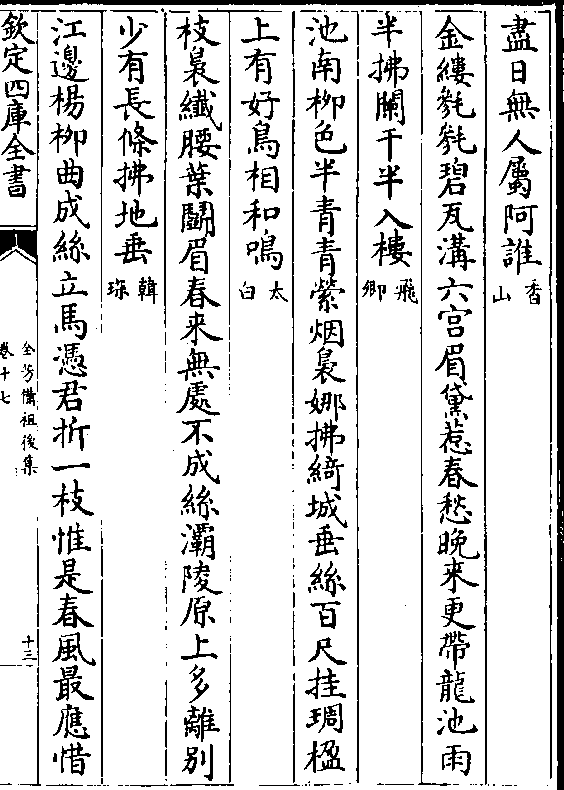 盡日無人屬阿誰香山
金縷毿毿碧瓦溝六宫眉黛惹春愁晚来更帶龍池雨
半拂闌干半入樓飛卿
池南柳色半青青縈烟裊娜拂綺城垂絲百尺挂琱楹
上有好鳥相和鳴太白
枝裊纖腰葉鬬眉春来無處不成絲灞陵原上多離别
少有長條拂地垂韓琮
江邊楊柳曲成絲立馬憑君折一枝惟是春風最應惜
欽定四庫全書
全芳備祖後集
卷十七
十三